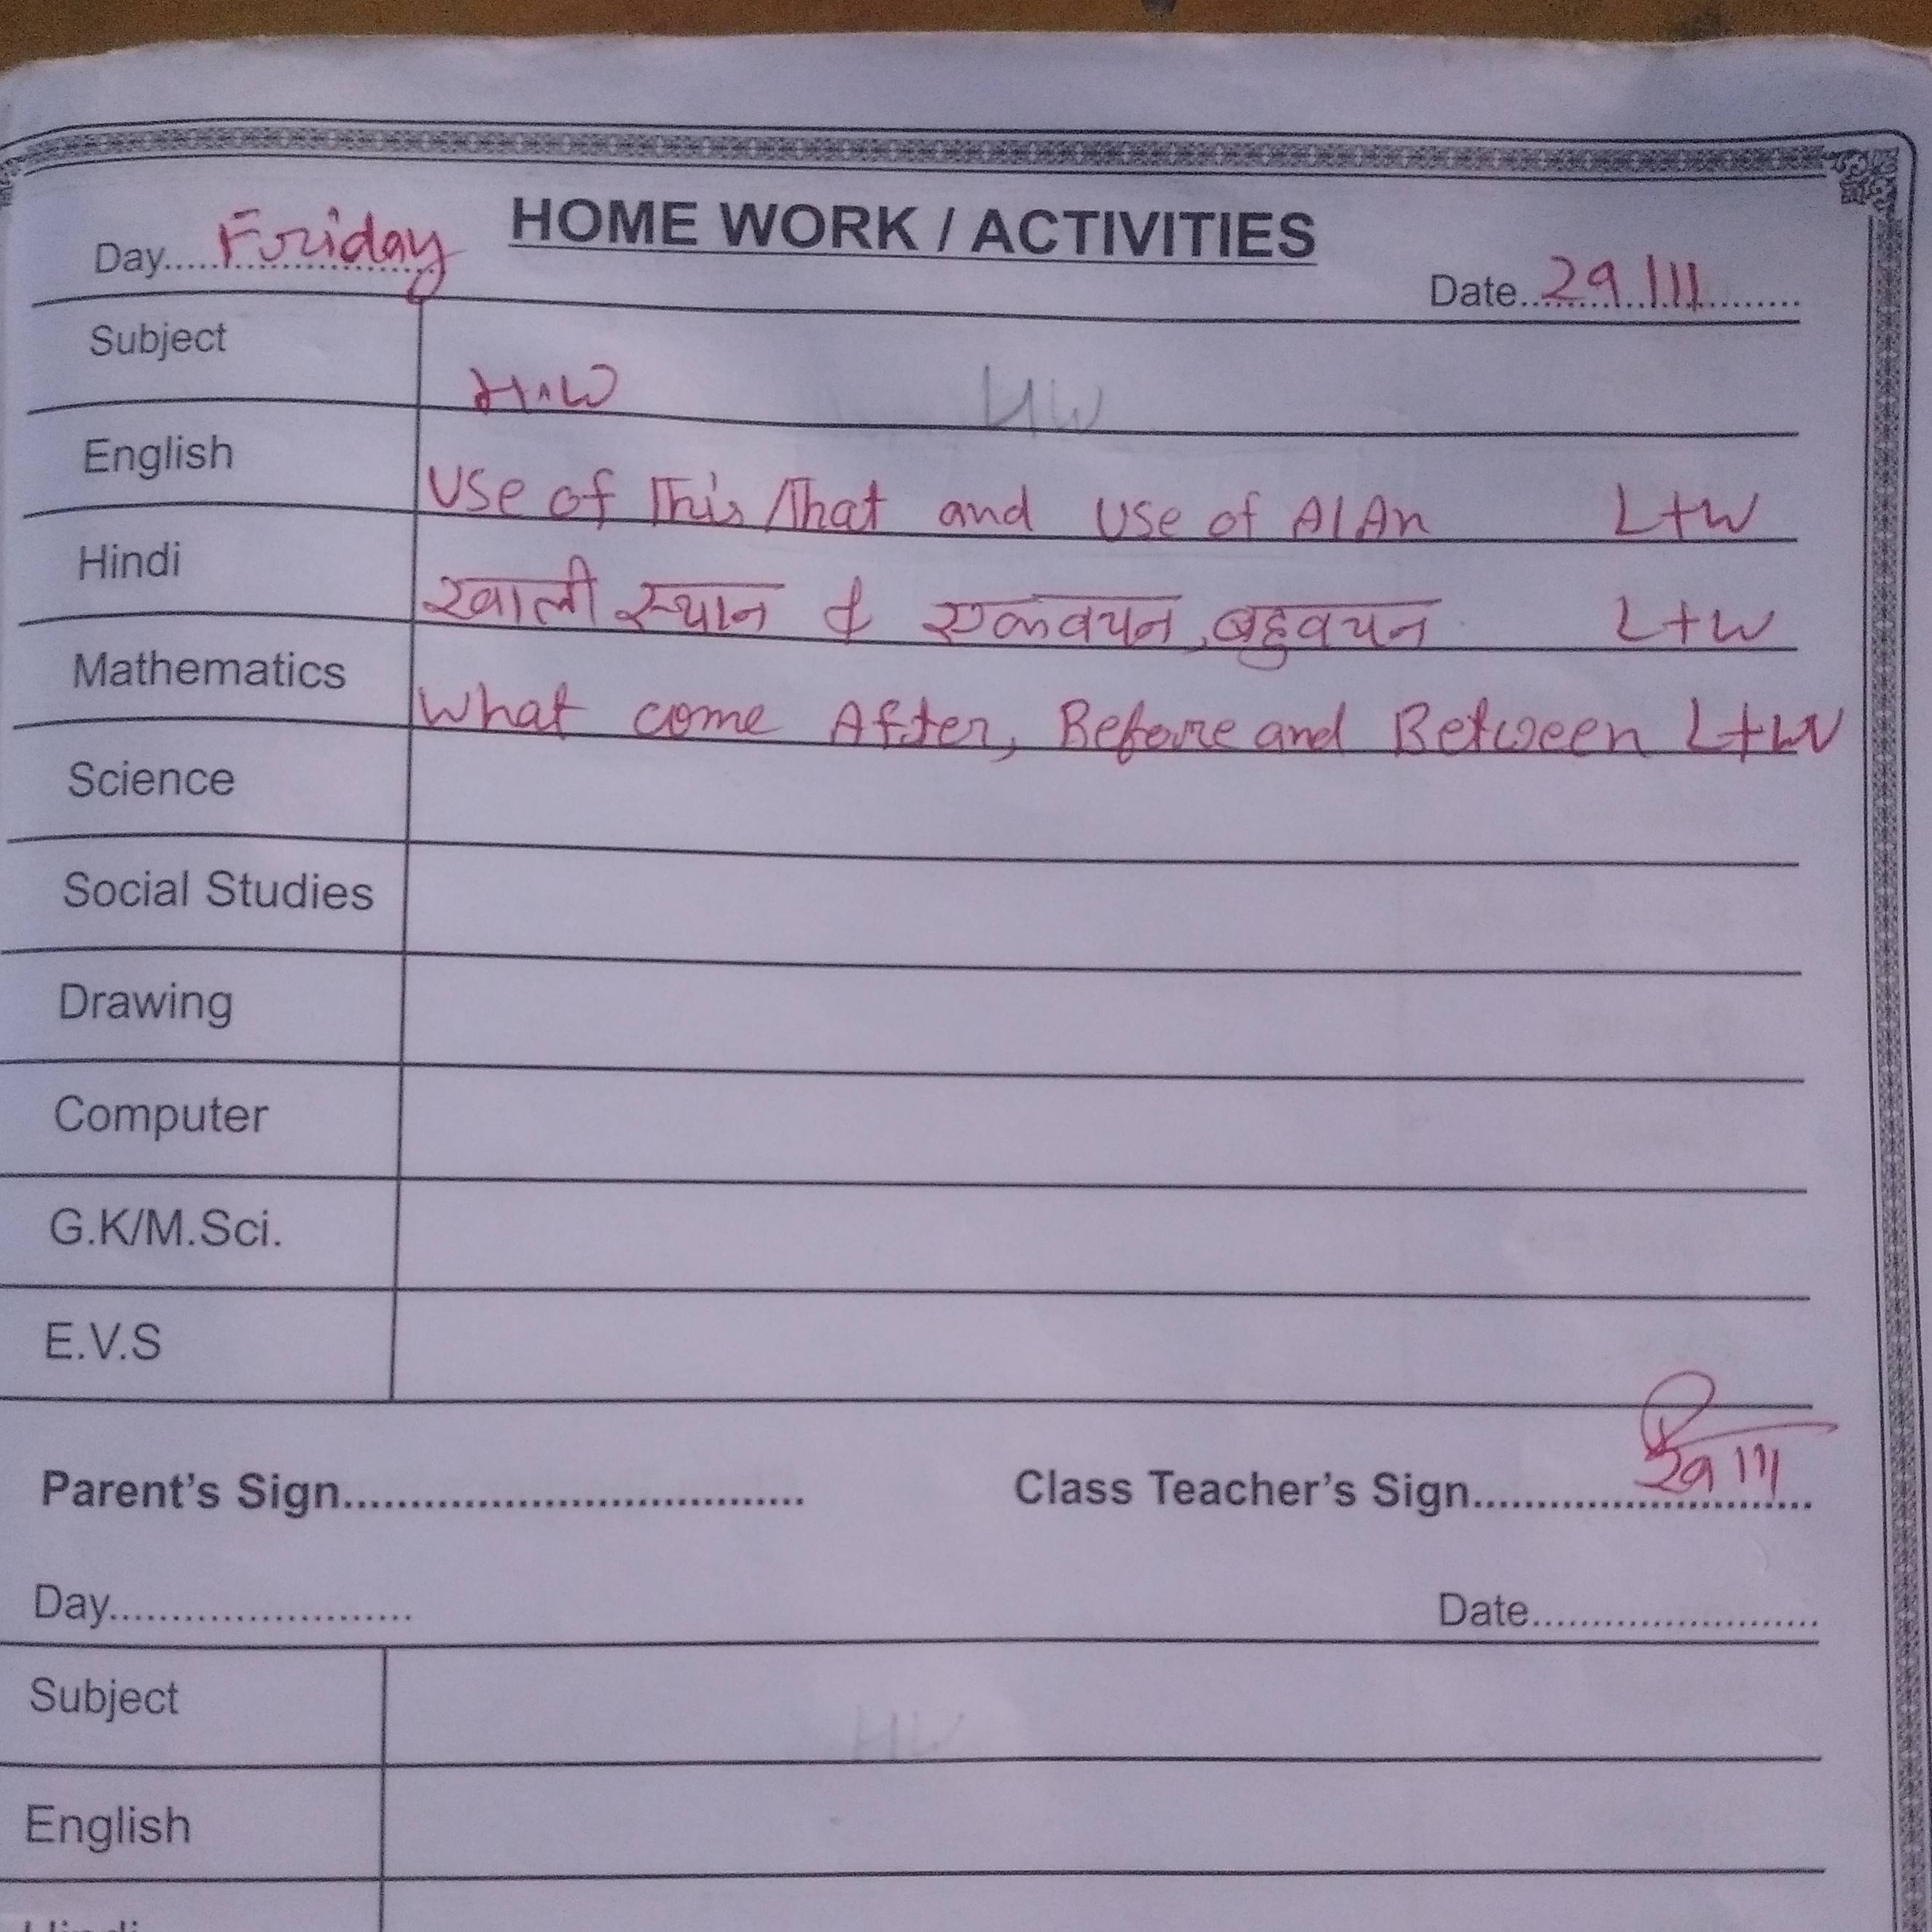 HOME WORK / ACTIVITIES
Day..... Friday Date.. 29/11
Subject H.W HW
English Use of This/That and Use of A/An L+W
Hindi खाली स्थान & एकवचन, बहुवचन L+W
Mathematics What come After, Before and Between L+W
Science
Social Studies
Drawing
Computer
G.K/M.Sci.
E.V.S
Parent's Sign.................................. Class Teacher's Sign......................... 29/11
Day......................... Date.......................
Subject HW
English
Hindi